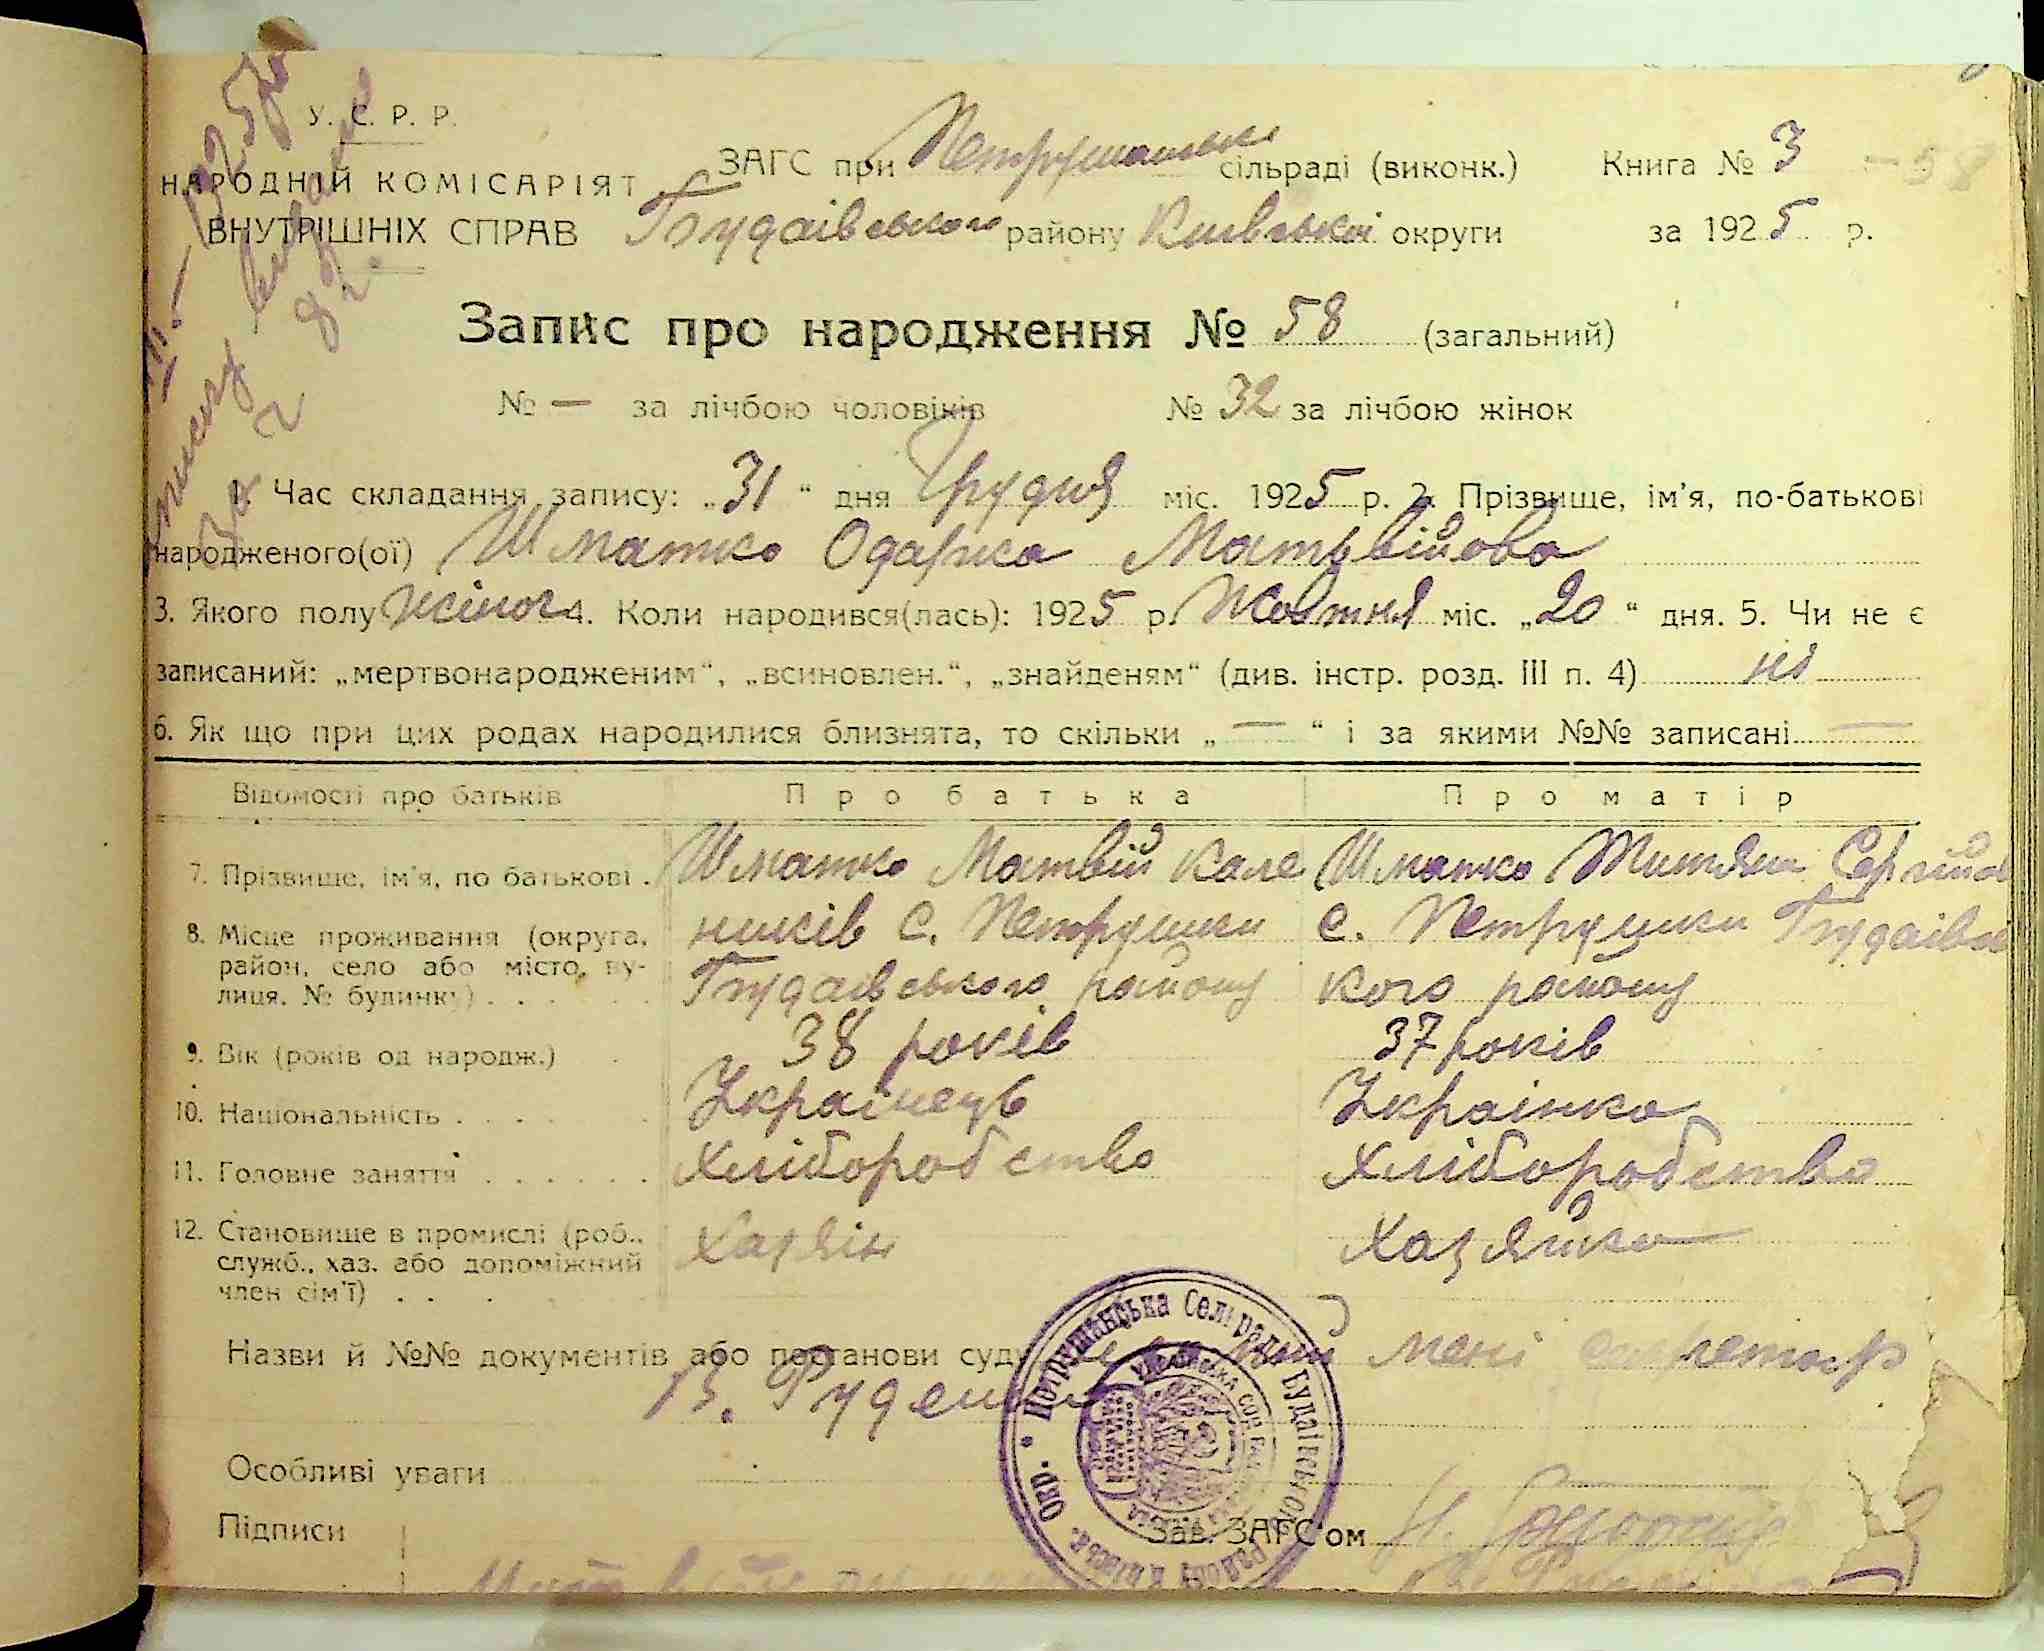 У. С. Р. Р.
НАРОДНІЙ КОМІСАРІЯТ
ВНУТРІШНІХ СПРАВ
ЗАГС при Петрушанські сільраді (виконк.)
Будаівського району Київської округи
Книга № 3 - 58
за 1925 р.
Запис про народження № 58 (загальний)
№ — за лічбою чоловіків № 32 за лічбою жінок
1. Час складання запису: „31“ дня Грудня міс. 1925 р. 2. Прізвище, ім'я, по-батькові
народженого(ої) Шматко Одарка Матьвійова
3. Якого полу жіноч 4. Коли народився(лась): 1925 р. Жовтня міс. „20“ дня. 5. Чи не є
записаний: „мертвонародженим“, „всиновлен.“, „знайденям“ (див. інстр. розд. III п. 4) ні
6. Як що при цих родах народилися близнята, то скільки „—“ і за якими №№ записані —
Відомості про батьків Про батька Про матір
7. Прізвище, ім'я, по батькові . Шматко Матвій Кале Шматко Титяна Сергійов
8. Місце проживання (округа, район, село або місто, вулиця, № будинку) . . . ників с. Петрушки с. Петрушки Будаівсь
Будаівського району кого району
9. Вік (років од народж.) 38 років 37 років
10. Національність . . . . Українець Українка
11. Головне заняття . . . . . . Хліборобство Хліборобство
12. Становище в промислі (роб., служб., хаз. або допоміжний член сім'ї) . . . Хазяін Хазяйка
Назви й №№ документів або постанови суду мені секретар
В. Руденко
Особливі уваги
Підписи
Зав. ЗАГС'ом
Петрушанська Сельрада Будаівського району Київськ. Окр.